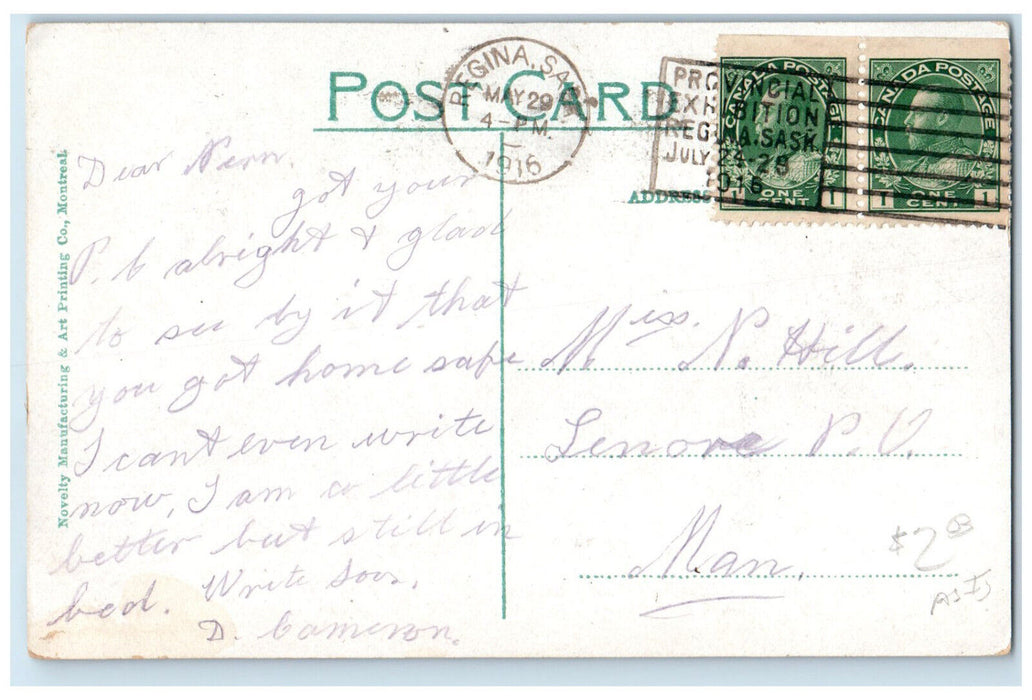 POST CARD
REGINA, SASK
MAY 29
4 - PM.
1916
PROVINCIAL
EXHIBITION
REGINA. SASK
JULY 24-28
1916
CANADA POSTAGE
1 ONE CENT 1
CANADA POSTAGE
1 ONE CENT 1
ADDRESS
Novelty Manufacturing & Art Printing Co., Montreal.
Dear Nern.
got your
P. C alright & glad
to see by it that
you got home safe
I cant even write
now, I am a little
better but still in
bed. Write soon.
D. Cameron.
Miss. N. Hill.
Lenore P.O.
Man.
$2